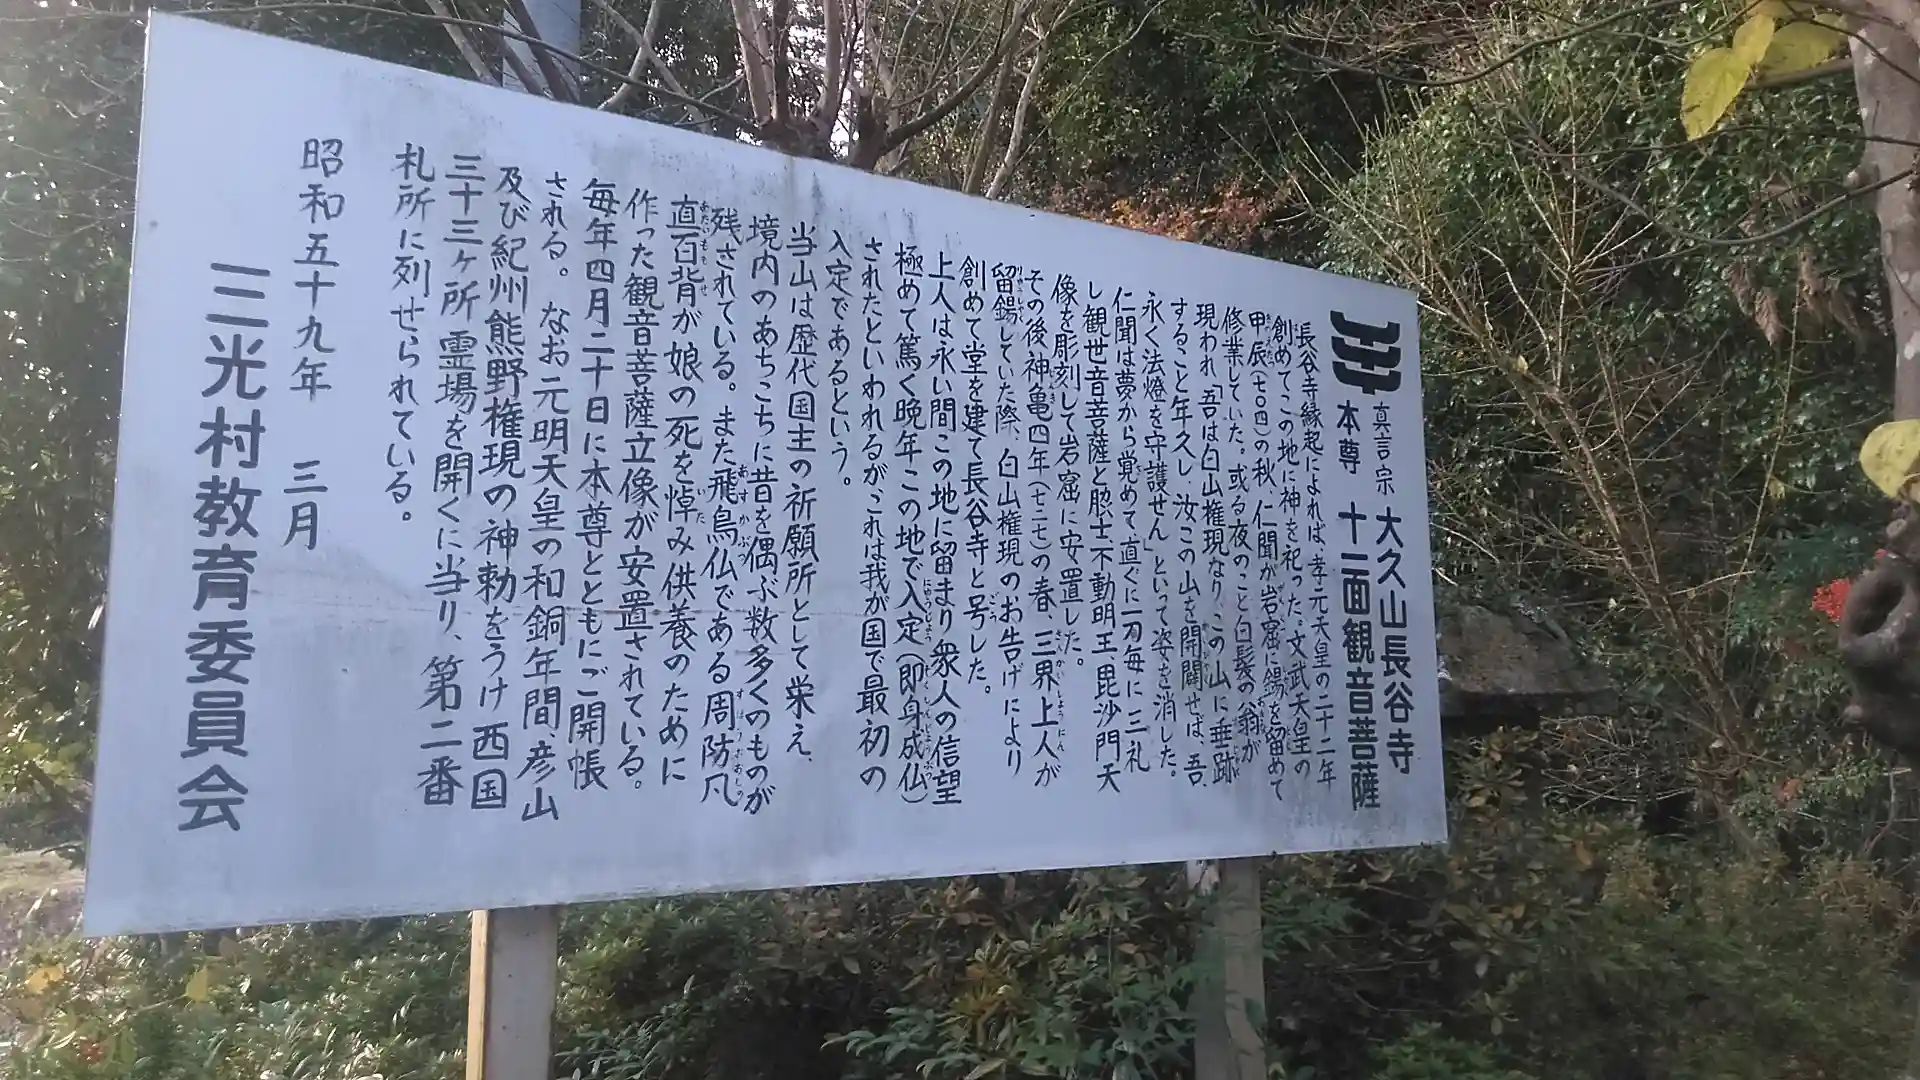 真言宗 大久山長谷寺
本尊 十一面観音菩薩
長谷寺縁起によれば、孝元天皇の二十二年
創めてこの地に神を祀った。文武天皇の
甲辰(七〇四)の秋、仁聞が岩窟に錫を留めて
修業していた。或る夜のこと白髪の翁が
現われ「吾は白山権現なり、この山に垂跡
すること年久し、汝この山を開闢せば、吾、
永く法燈を守護せん」といって姿を消した。
仁聞は夢から覚めて、直ぐに一刀毎に三礼
し観世音菩薩と脇士、不動明王、毘沙門天
像を彫刻して岩窟に安置した。
その後神亀四年(七二七)の春、三界上人が
留錫していた際、白山権現のお告げにより
創めて堂を建て長谷寺と号した。
上人は永い間この地に留まり衆人の信望
極めて篤く晩年この地で入定(即身成仏)
されたといわれるがこれは我が国で最初の
入定であるという。
当山は歴代国主の祈願所として栄え、
境内のあちこちに昔を偶ぶ数多くのものが
残されている。また飛鳥仏である周防凡
直百背が娘の死を悼み供養のために
作った観音菩薩立像が安置されている。
毎年四月二十日に本尊とともにご開帳
される。なお元明天皇の和銅年間、彦山
及び紀州熊野権現の神勅をうけ西国
三十三ヶ所霊場を開くに当り、第二番
札所に列せられている。
昭和五十九年 三月
三光村教育委員会